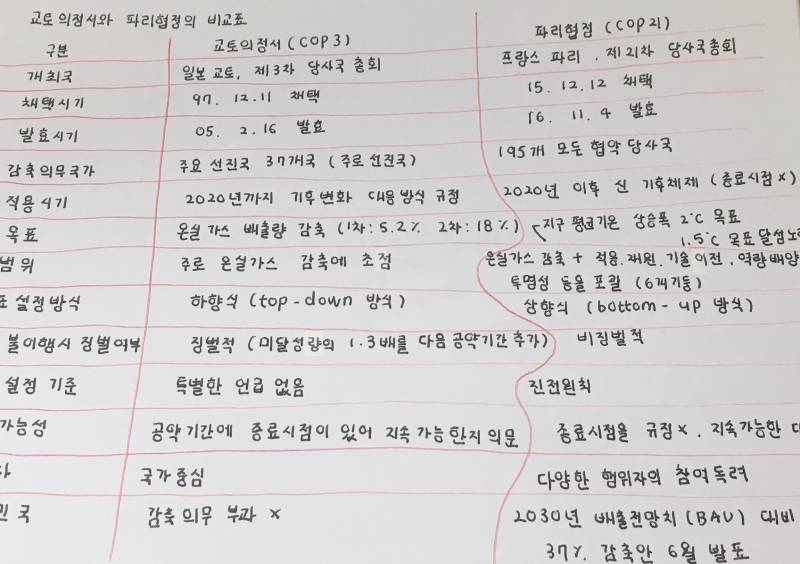 교토의정서와 파리협정의 비교표
구분 교토의정서(COP3) 파리협정(COP21)
개최국 일본 교토, 제3차 당사국 총회 프랑스 파리, 제21차 당사국총회
채택시기 97. 12. 11 채택 15. 12. 12 채택
발효시기 05. 2. 16 발효 16. 11. 4 발효
감축의무국가 주요 선진국 37개국 (주로 선진국) 195개 모든 협약 당사국
적용시기 2020년까지 기후변화 대응방식 규정 2020년 이후 신 기후체제 (종료시점×)
목표 온실 가스 배출량 감축 (1차:5.2% 2차:18%) 지구 평균기온 상승폭 2℃ 목표
1.5℃ 목표 달성노
범위 주로 온실가스 감축에 초점 온실가스 감축 + 적응.재원.기술이전.역량배양
투명성 등을 포괄 (6개기둥)
설정방식 하향식 (top-down 방식) 상향식 (bottom-up 방식)
불이행시 징벌여부 징벌적 (미달성량의 1.3배를 다음 공약기간 추가) 비징벌적
설정 기준 특별한 언급 없음 진전원칙
가능성 공약기간에 종료시점이 있어 지속가능한지 의문 종료시점을 규정×, 지속가능한
국가중심 다양한 행위자의 참여독려
국 감축의무 부과 × 2030년 배출전망치(BAU) 대비
37% 감축안 6월 발표